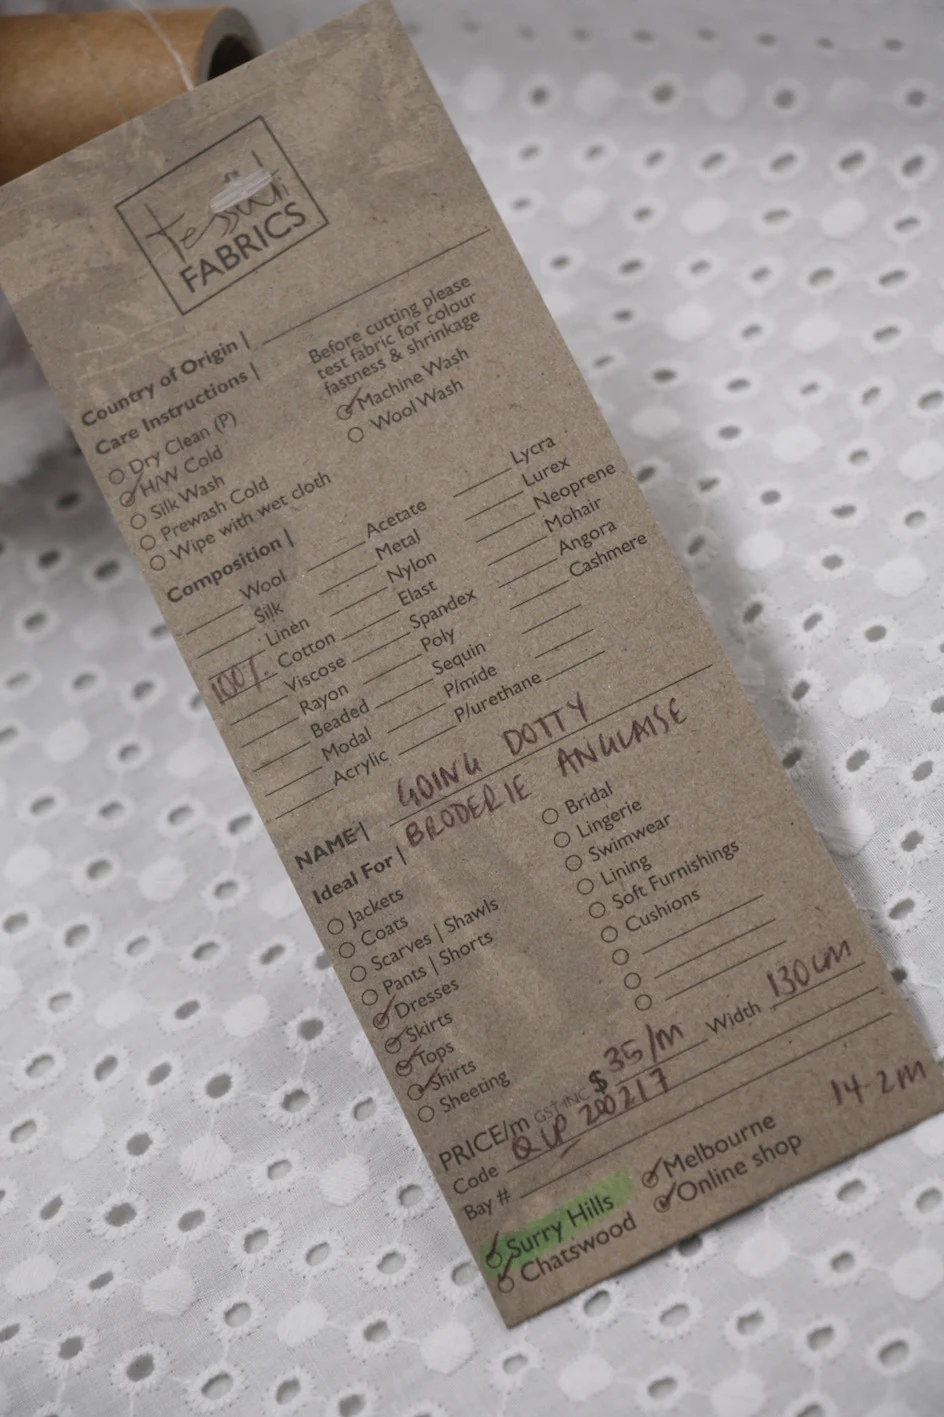 tessuti
FABRICS
Country of Origin |
Care Instructions |
Before cutting please
test fabric for colour
fastness & shrinkage
Dry Clean (P)
H/W Cold
Silk Wash
Prewash Cold
Wipe with wet cloth
Machine Wash
Wool Wash
Composition |
Wool
Silk
Linen
100% Cotton
Viscose
Rayon
Beaded
Modal
Acrylic
Acetate
Metal
Nylon
Elast
Spandex
Poly
Sequin
P/mide
P/urethane
Lycra
Lurex
Neoprene
Mohair
Angora
Cashmere
NAME | GOING DOTTY
BRODERIE ANGLAISE
Ideal For |
Jackets
Coats
Scarves | Shawls
Pants | Shorts
Dresses
Skirts
Tops
Shirts
Sheeting
Bridal
Lingerie
Swimwear
Lining
Soft Furnishings
Cushions
PRICE/m GST INC $35/m Width 130cm
Code 200217
Bay #
14.2M
Surry Hills
Chatswood
Melbourne
Online shop